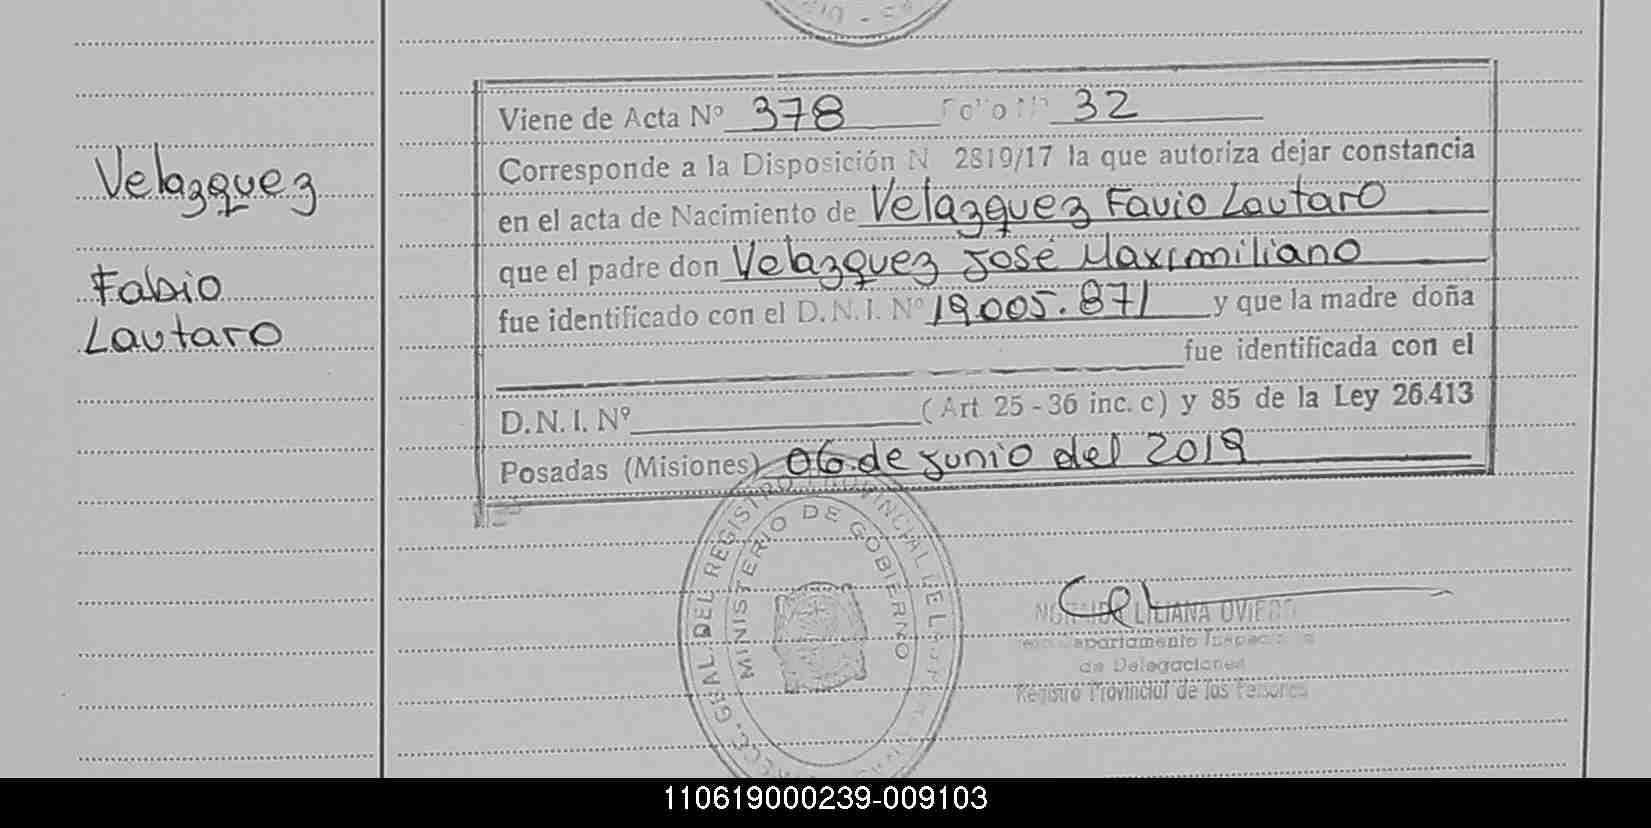 Velazquez
Fabio
Lautaro
Viene de Acta Nº 378 Folio Nº 32
Corresponde a la Disposición N 2819/17 la que autoriza dejar constancia
en el acta de Nacimiento de Velazquez Favio Lautaro
que el padre don Velazquez José Maximiliano
fue identificado con el D.N.I. Nº 19.005.871 y que la madre doña
fue identificada con el
D.N.I. Nº (Art 25-36 inc. c) y 85 de la Ley 26.413
Posadas (Misiones) 06 de junio del 2019
DEL REGISTRO PROVINCIAL DE
MINISTERIO DE GOBIERNO
LILIANA OVIEDO
Departamento
de Delegaciones
Registro Provincial de las Personas
110619000239-009103